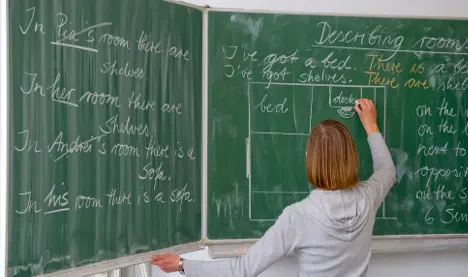 In Pia's room there are
shelves.
In her room there are
shelves.
In André's room there is a
sofa.
In his room there is a sofa.
Describing room
I've got a bed. There is a b
I've got shelves. There are shel
bed
desk
on th
on the
next to
oppos
on the
6 Sen